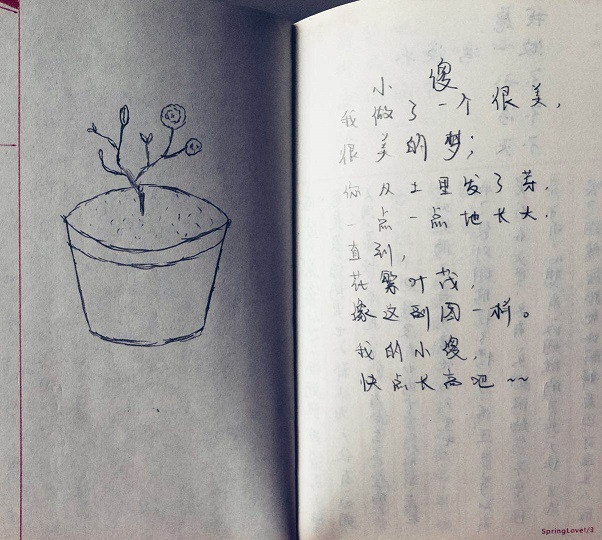 小傻
我做了一个很美,
很美的梦;
你从土里发了芽.
一点一点地长大.
直到,
花繁叶茂,
像这副图一样。
我的小傻,
快点长高吧~~
SpringLove!/3